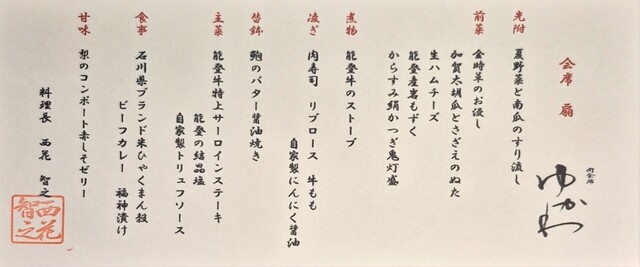 会席 扇
肉会席
ゆかわ
先附
夏野菜と南瓜のすり流し
前菜
金時草のお優し
加賀太胡瓜とさざえのぬた
生ハムチーズ
能登産岩もずく
からすみ絹かつぎ鬼灯盛
煮物
能登牛のストーブ
凌ぎ
肉寿司 リブロース 牛もも
自家製にんにく醤油
替鉢
鮑のバター醤油焼き
主菜
能登牛特上サーロインステーキ
能登の結晶塩
自家製トリュフソース
食事
石川県ブランド米ひゃくまん穀
ビーフカレー 福神漬け
甘味
梨のコンポート赤しそゼリー
料理長 西花 智之
西花
智之